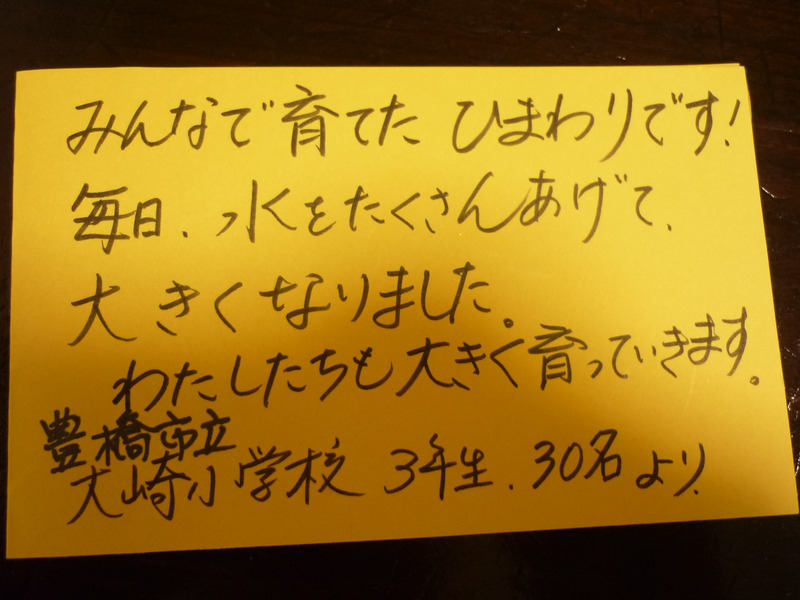 みんなで育てた ひまわりです!
毎日、水をたくさんあげて、
大きくなりました。
わたしたちも大きく育っていきます。
豊橋市立
大崎小学校 3年生、30名より